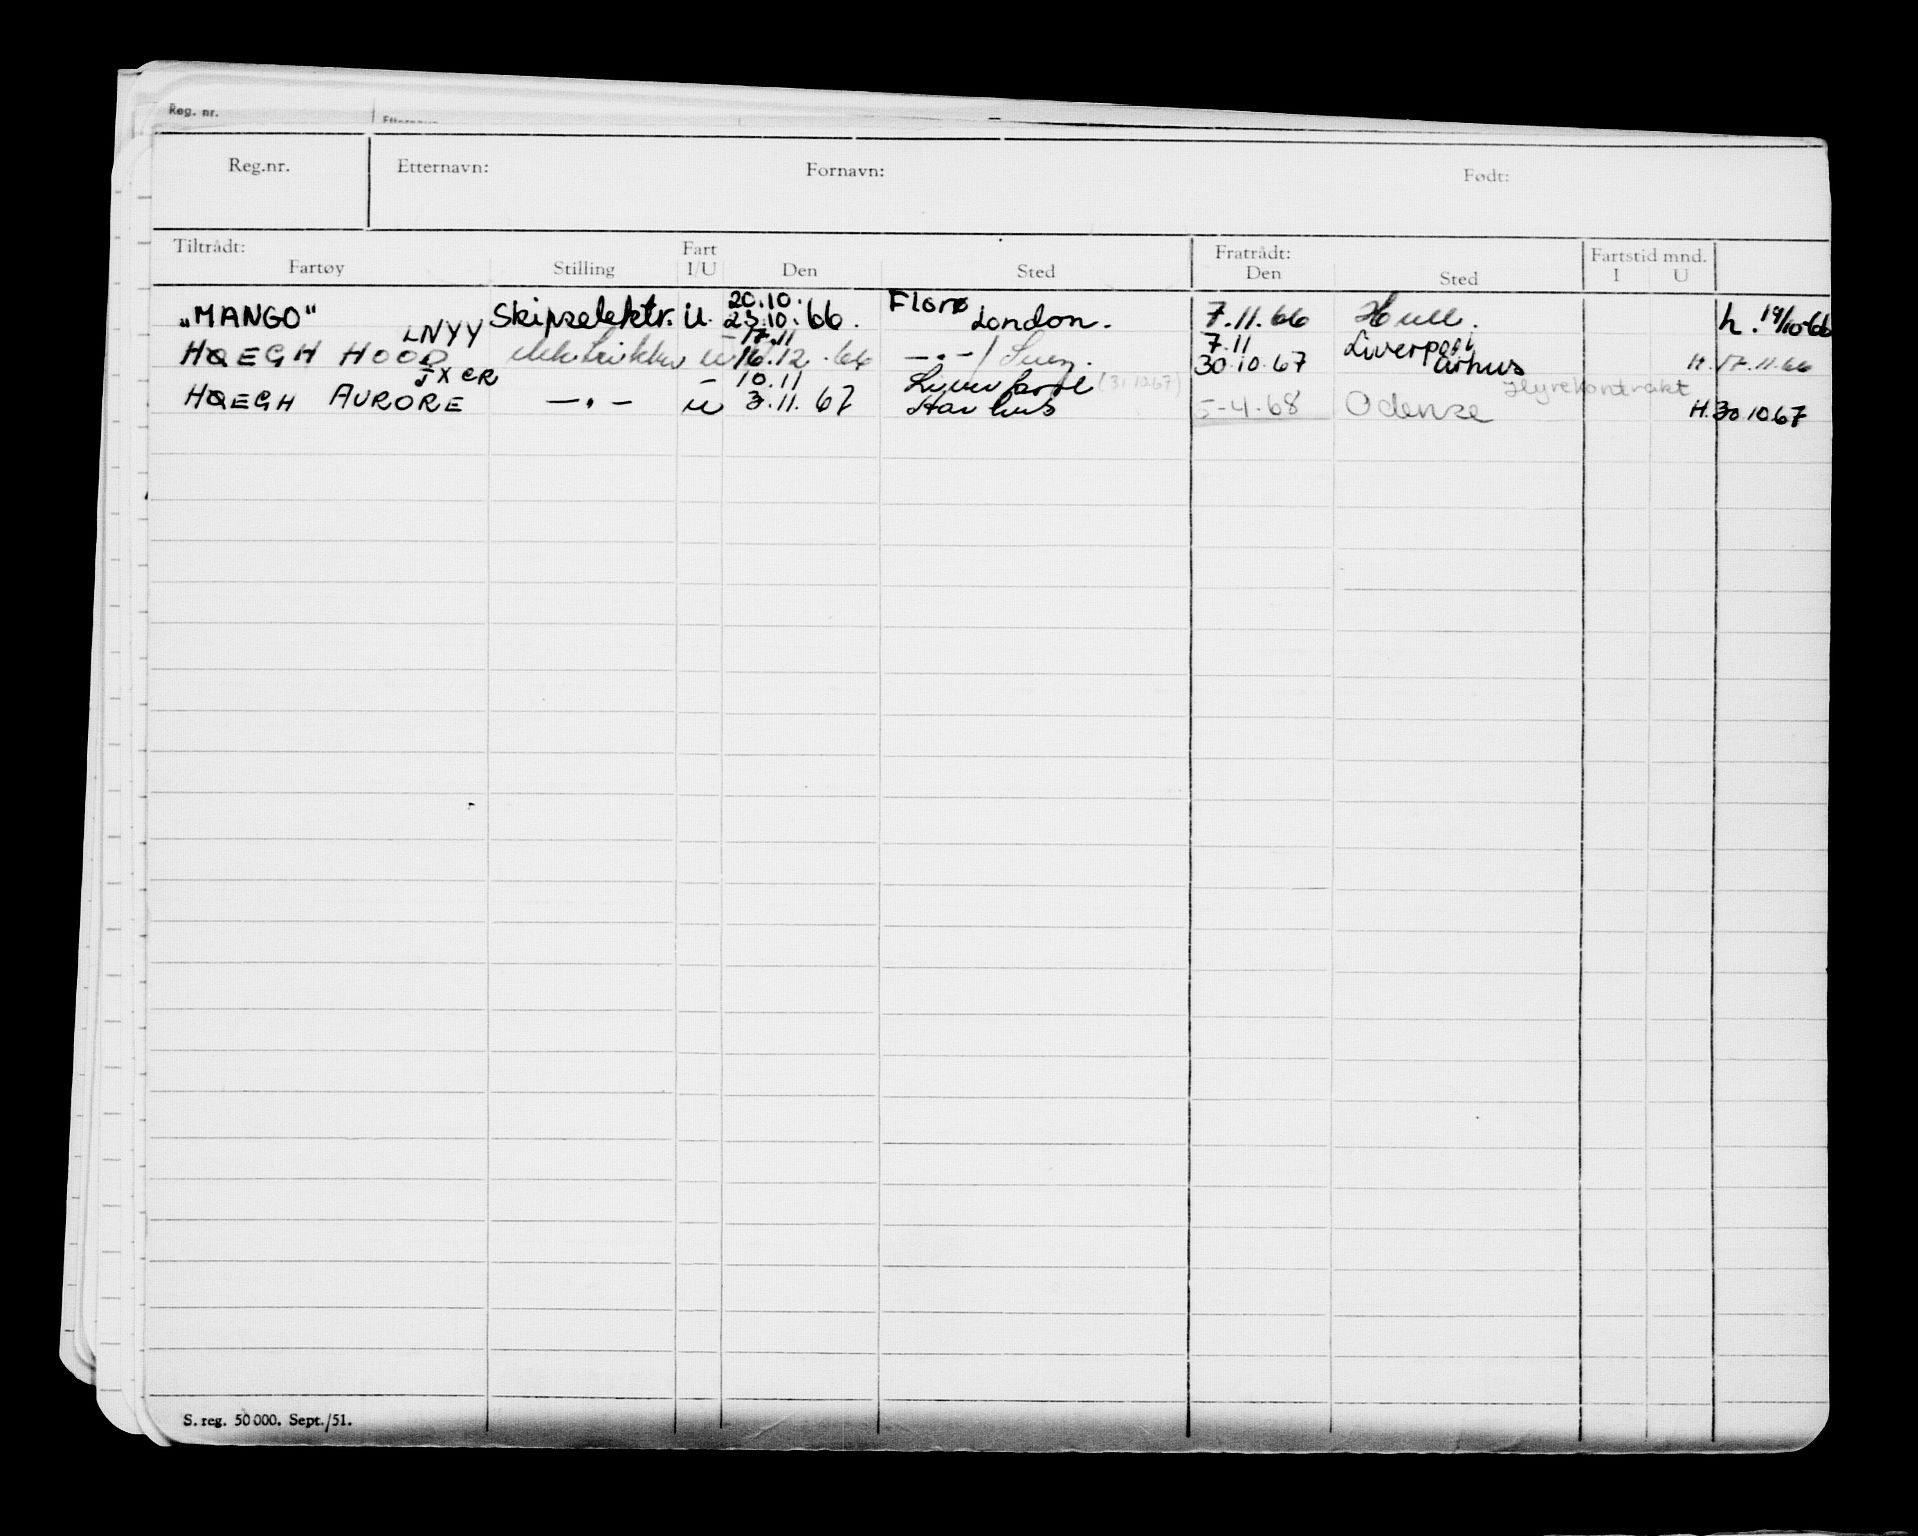 Reg. nr.
Reg.nr. Etternavn: Fornavn: Født:
Tiltrådt: Fart Fratrådt: Fartstid mnd.
Fartøy Stilling I/U Den Sted Den Sted I U
20.10. Florø
„MANGO" Skipselektr. U. 23.10.66. London. 7.11.66 Hull. h. 19/10-66
LNYY 17.11 7.11 Liverpool
HØEGH HOOD elektriker U 16.12.66 — • — / Suez. 30.10.67 Århus H. 17.11.66
JXCR 10.11 Liverpool (31.10.67) Hyrekontrakt
HØEGH AURORE — • — U 3.11.67 Aarhus 5-4.68 Odense H. 30.10.67
S. reg. 50 000. Sept./51.